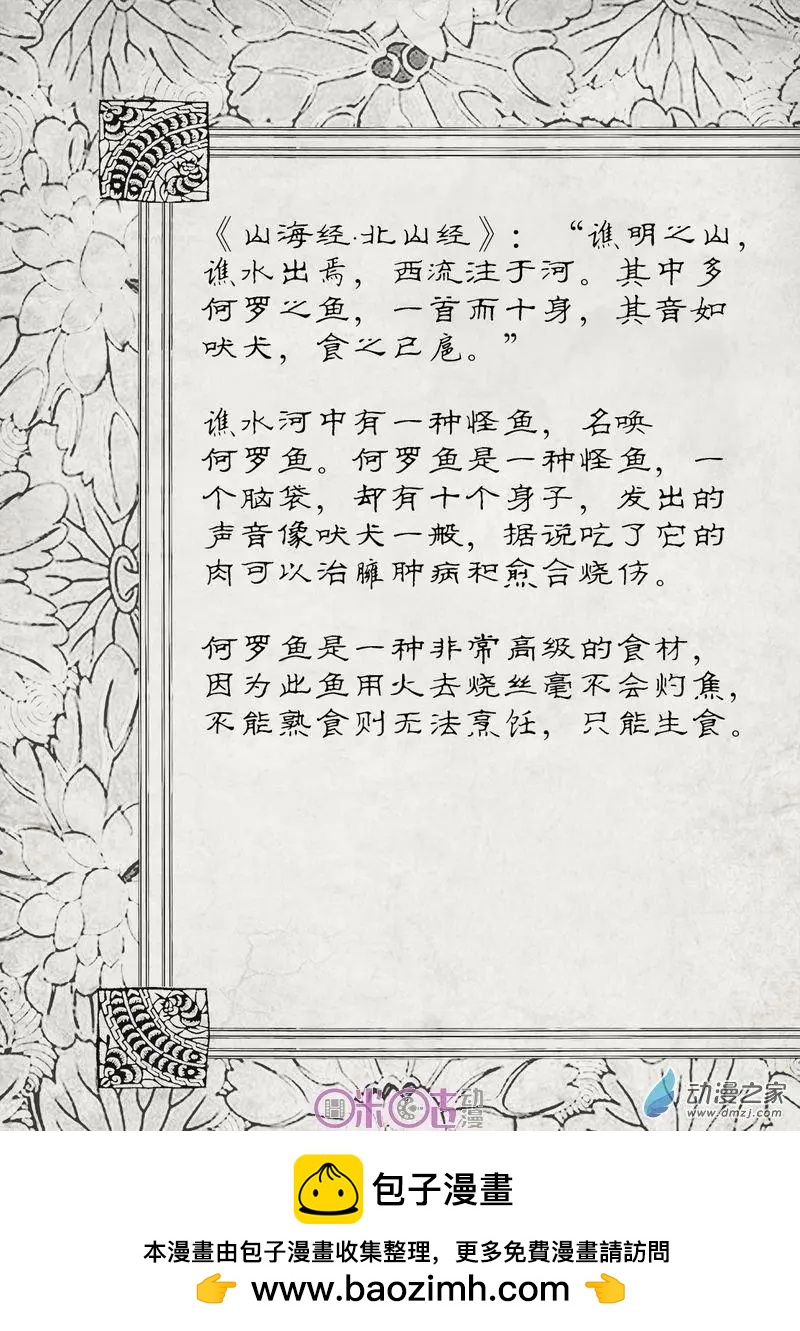 《山海经·北山经》：“谯明之山，
谯水出焉，西流注于河。其中多
何罗之鱼，一首而十身，其音如
吠犬，食之已癰。”
谯水河中有一种怪鱼，名唤
何罗鱼。何罗鱼是一种怪鱼，一
个脑袋，却有十个身子，发出的
声音像吠犬一般，据说吃了它的
肉可以治臃肿病和愈合烧伤。
何罗鱼是一种非常高级的食材，
因为此鱼用火去烧丝毫不会灼焦，
不能熟食则无法烹饪，只能生食。
咪咕动漫
动漫之家
www.dmzj.com
包子漫畫
本漫畫由包子漫畫收集整理，更多免費漫畫請訪問
👉 www.baozimh.com 👈